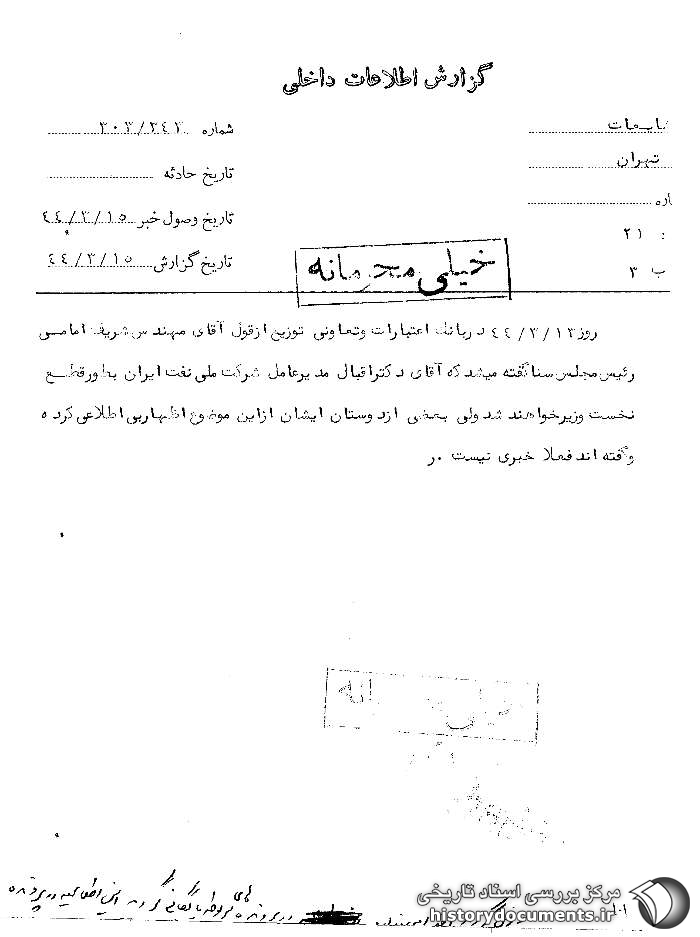 گزارش اطلاعات داخلی
شماره ۳۰۳/۳۴۳
تاریخ حادثه
تاریخ وصول خبر ۴۴/۳/۱۵
تاریخ گزارش ۴۴/۳/۱۵
تهران
اره
: ۲۱
ب ۳
خیلی محرمانه
روز ۴۴/۳/۱۳ در بانک اعتبارات وتعاونی توزیع ازقول آقای مهندس شریف امامی
رئیس مجلس سنا گفته میشد که آقای دکتر اقبال مدیرعامل شرکت ملی نفت ایران بطور قطع
نخست وزیر خواهند شد ولی بعضی ازدوستان ایشان ازاین موضوع اظهاربی اطلاعی کرده
وگفته اند فعلا خبری نیست .ر
مرکز بررسی اسناد تاریخی
historydocuments.ir